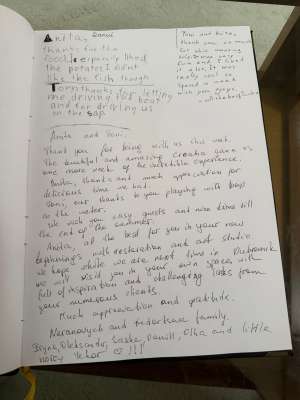 Anita, Daniil
thanks for the
food, I especially liked
the potatoes I didnt
like the fish though
Toni thanks for letting
me driving the boat
and for driving us
on the sap
Toni and Anita,
thank you so much
for this amazing
trip. It was very
fun and I liked
it a lot. It was
really cool to
spend a week
with you guys.
Anita and Toni.
Thank you for being with us this week.
The beautiful and amazing Croatia gave us
one more week of the incredible experience.
Anita, thanks and much appreciation for
delicious time we had.
Toni, our thanks to you playing with boys
in the water.
We wish you easy guests and nice time till
the end of the summer.
Anita, all the best for you in your new
beginnings with restoration and art studio
we hope while we are next time in Dubrovnik
we will visit you in your own space with
full of inspiration and challenging tasks from
your numerous clients.
Much appreciation and gratitude.
family
Iryna, Oleksandr, Sasha, Daniil, Olha and little
noisy Yehor !!!